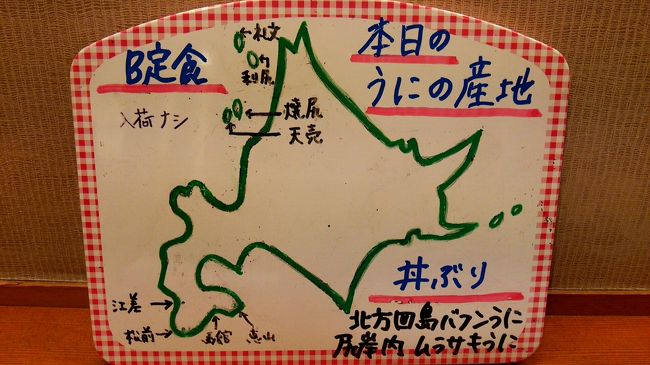 本日の
うにの産地
B定食
入荷ナシ
礼文
利尻
焼尻
天売
江差
松前
函館
恵山
丼ぶり
北方四島バフンうに
尻岸内 ムラサキうに